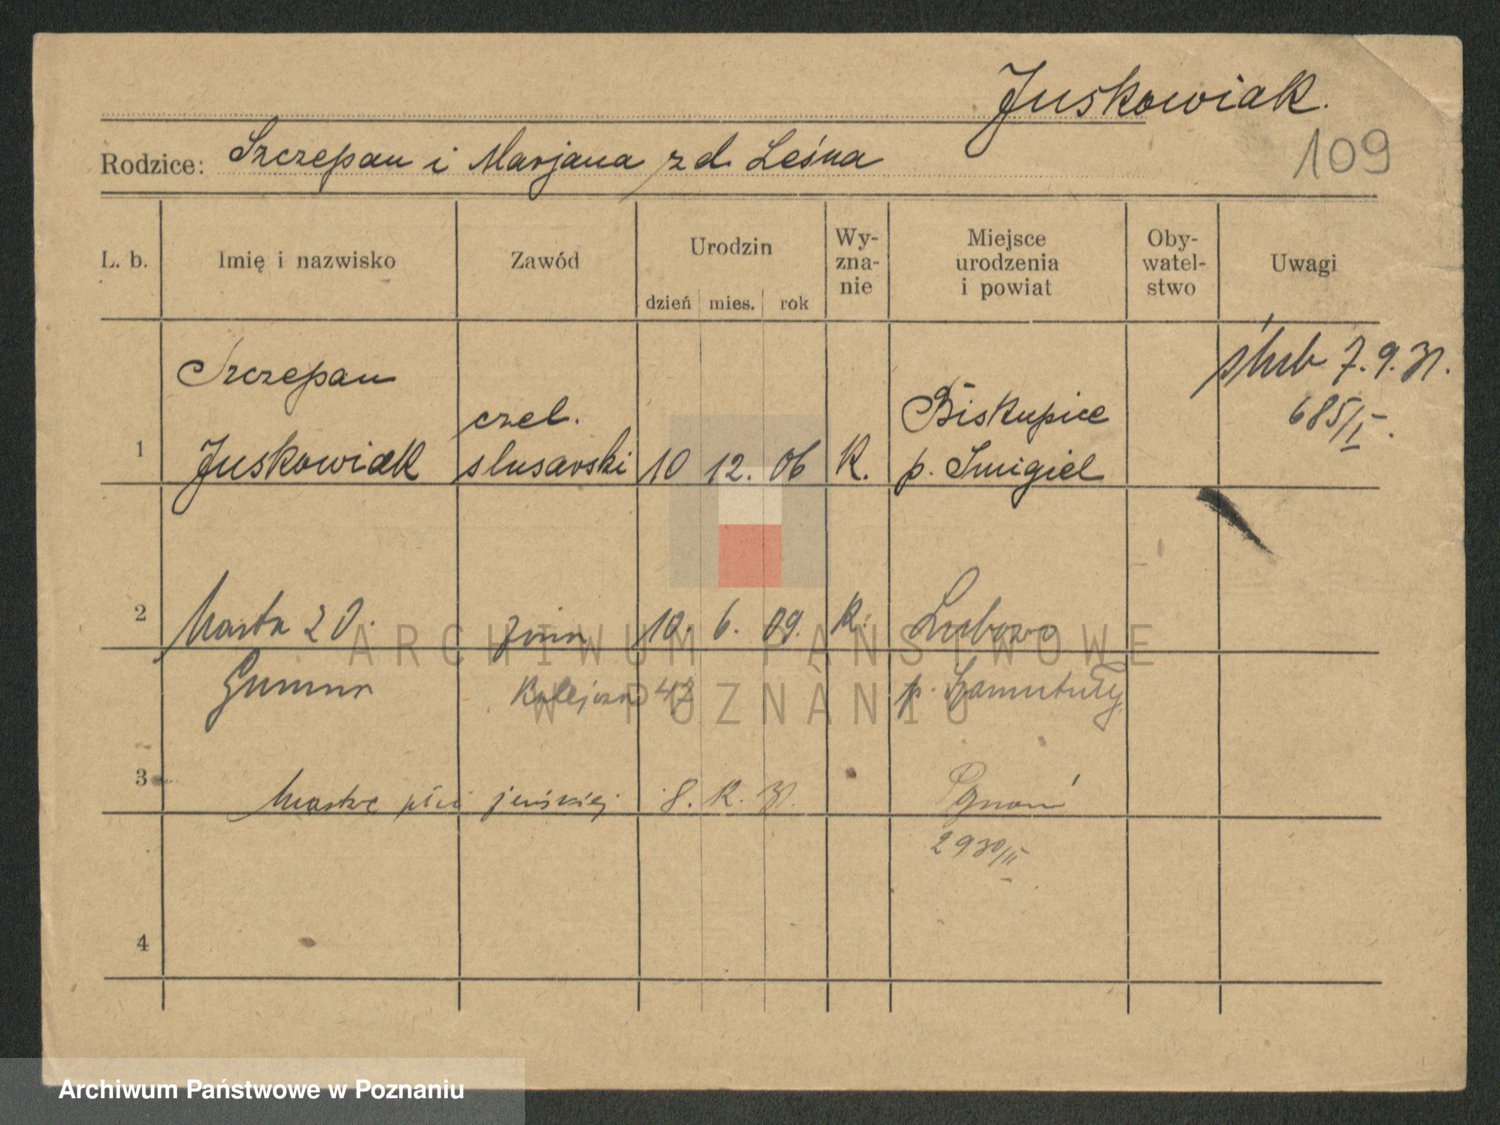 Juskowiak.
109
Rodzice: Szczepan i Marjana zd Leśna
L. b. Imię i nazwisko Zawód Urodzin dzień mies. rok Wy-zna-nie Miejsce urodzenia i powiat Oby-watel-stwo Uwagi
ślub 7.9.31.
685/I.
1 Szczepan Juskowiak czel. slusarski 10 12. 06 K. Biskupice p. Smigiel
2 Marta zd. żona 10. 6. 09. K.
Kolejowa 47 p. Szamotuły
3 płci żeńskiej 8. 31. Poznań
2930/II
4
ARCHIWUM PAŃSTWOWE
W POZNANIU
Archiwum Państwowe w Poznaniu